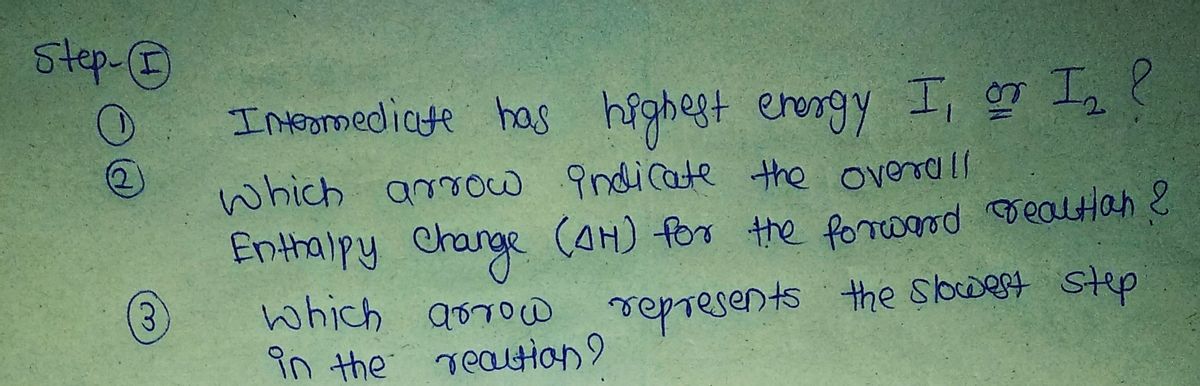 Step-Ⓘ
① Intermediate has highest energy I₁ or I₂ ?
② which arrow indicate the overall
Enthalpy change (ΔH) for the forward reaction ?
③ which arrow represents the slowest step
in the reaction?